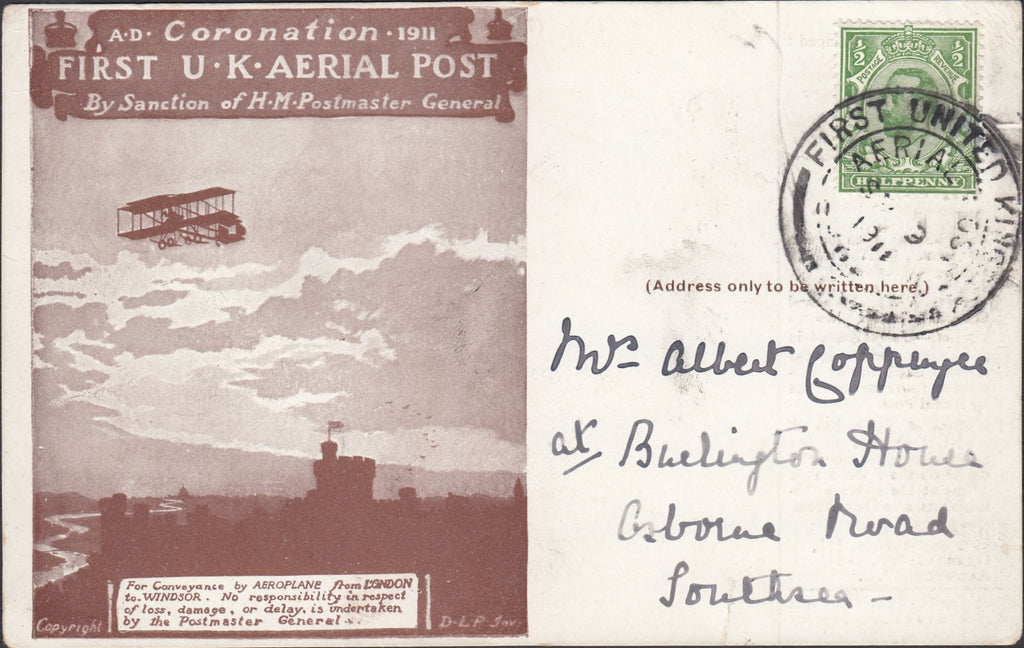 A·D· Coronation · 1911
FIRST U·K·AERIAL POST
By Sanction of H·M·Postmaster General
For Conveyance by AEROPLANE from LONDON
to WINDSOR. No responsibility in respect
of loss, damage, or delay, is undertaken
by the Postmaster General.
Copyright
D·L·P· Inv.
1/2 1/2
POSTAGE REVENUE
HALFPENNY
FIRST UNITED KING
AERIAL
1911
(Address only to be written here.)
Mrs Albert
at Burlington House
Osborne Road
Southsea –